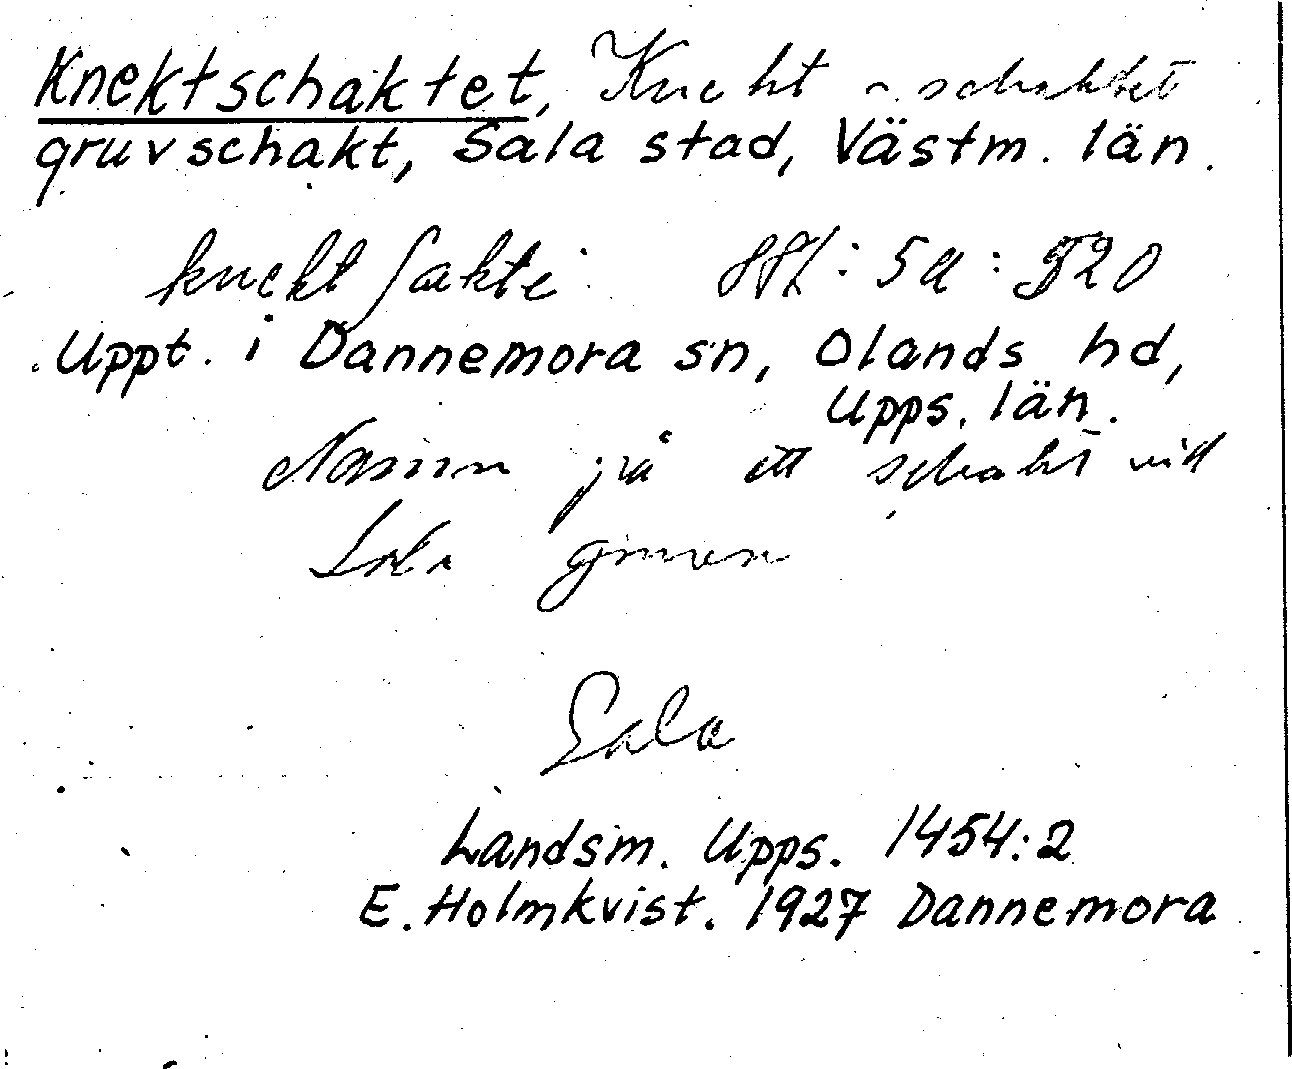 Knektschaktet, Knekt-schaktet
gruvschakt, Sala stad, Västm. län.
knekt
Uppt. i Dannemora sn, Olands hd,
Upps. län.
Namn på ett schakt vid
Sala gruva
Sala
Landsm. Upps. 1454:2
E. Holmkvist. 1927 Dannemora